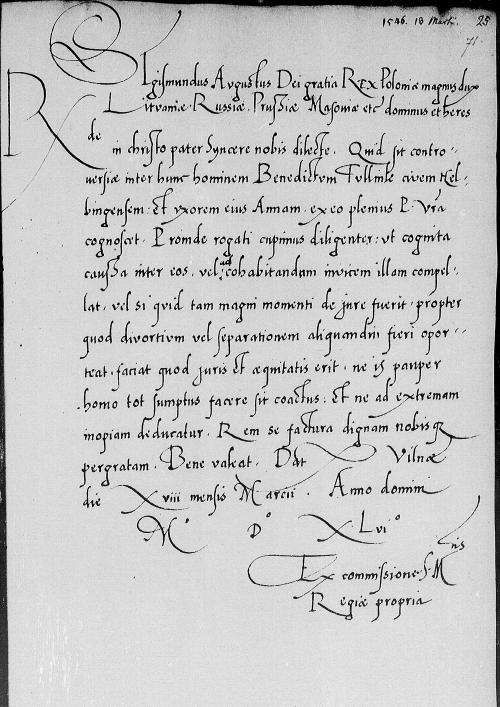 1546. 18 Martii. 25
71.
SIgismundus Augustus Dei gratia REX Poloniæ magnus dux
Lituaniæ Russiæ, Prussiæ Masoviæ etc dominus et heres
Rde
in christo pater syncere nobis dilecte. Quid sit contro-
versiæ inter hunc hominem Benedictum Tullinke civem Hel-
bingensem: et uxorem eius Annam. ex eo plenius P. Vra
cognoscet. Proinde rogati cupimus diligenter: ut cognita
caussa inter eos. vel ad cohabitandum invicem illam compel-
lat. vel si quid tam magni momenti de jure fuerit. propter
quod divortium vel separationem aliquandiu fieri opor-
teat. faciat quod juris et æquitatis erit. ne is pauper
homo tot sumptus facere sit coactus: et ne ad extremam
inopiam deducatur. Rem se factura dignam nobisq
pergratam. Bene valeat. Dat Vilnæ
die Xviii mensis Marcii. Anno domini
M° D° XLvi°
Ex commissione S. Mtis
Regiæ propria